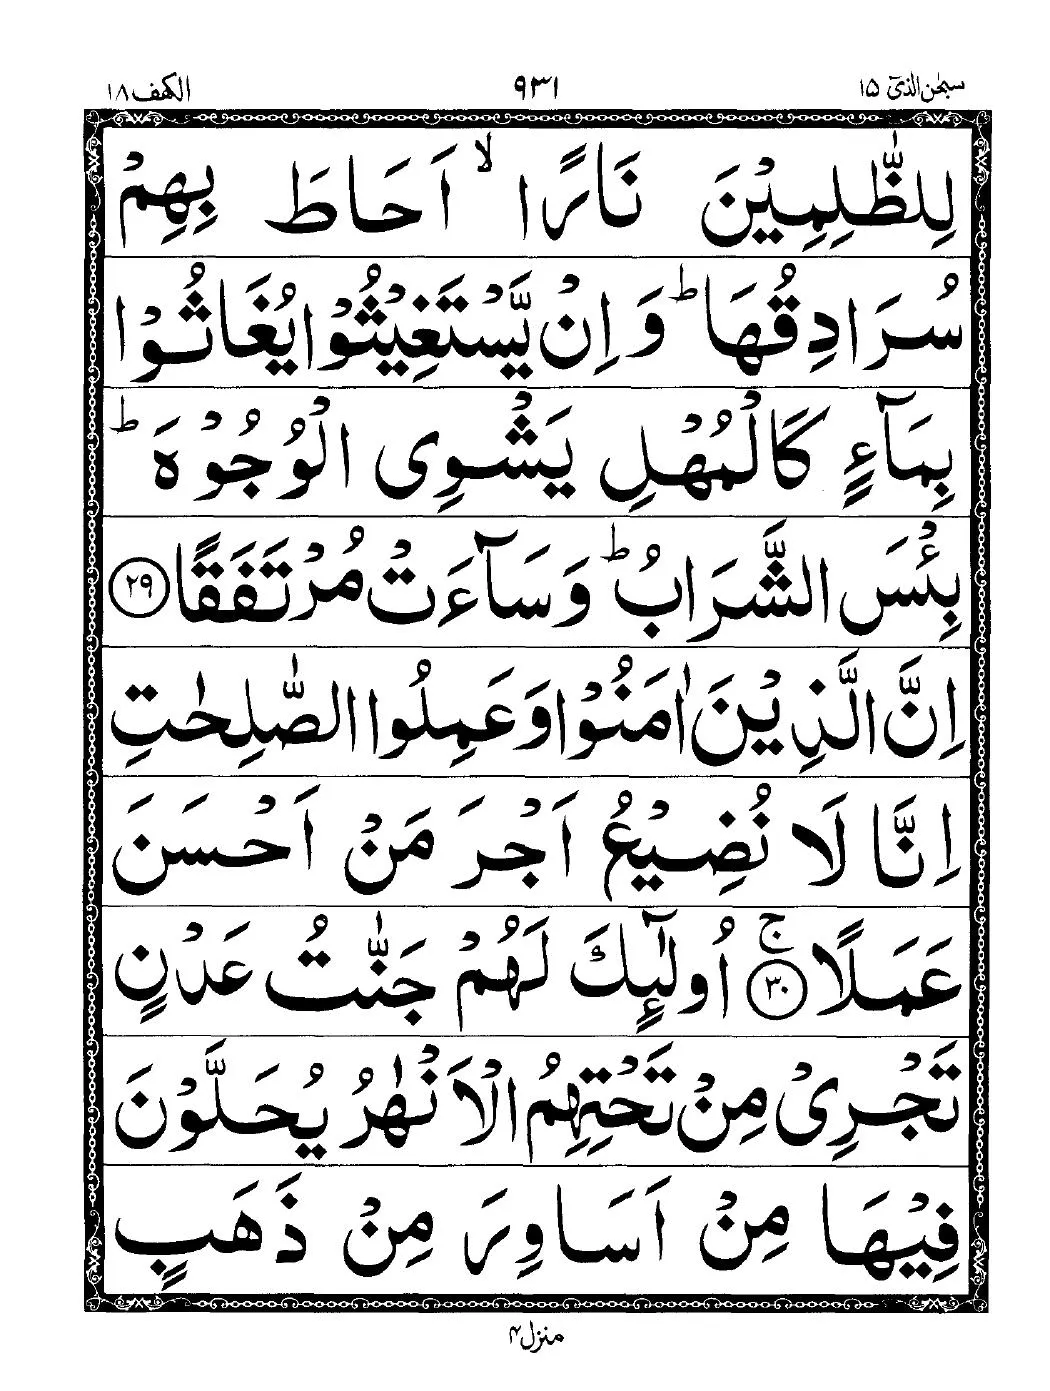 سبحٰن الذیٓ ۱۵ ۹۳۱ الکهف ۱۸
لِلظّٰلِمِيْنَ نَارًا ۙ اَحَاطَ بِهِمْ
سُرَادِقُهَا ؕ وَ اِنْ يَّسْتَغِيْثُوْا يُغَاثُوْا
بِمَآءٍ كَالْمُهْلِ يَشْوِى الْوُجُوْهَ ؕ
بِئْسَ الشَّرَابُ ؕ وَ سَآءَتْ مُرْتَفَقًا ۲۹
اِنَّ الَّذِيْنَ اٰمَنُوْا وَ عَمِلُوا الصّٰلِحٰتِ
اِنَّا لَا نُضِيْعُ اَجْرَ مَنْ اَحْسَنَ
عَمَلًا ۳۰ ۚ اُولٰٓئِكَ لَهُمْ جَنّٰتُ عَدْنٍ
تَجْرِىْ مِنْ تَحْتِهِمُ الْاَنْهٰرُ يُحَلَّوْنَ
فِيْهَا مِنْ اَسَاوِرَ مِنْ ذَهَبٍ
منزل ۴